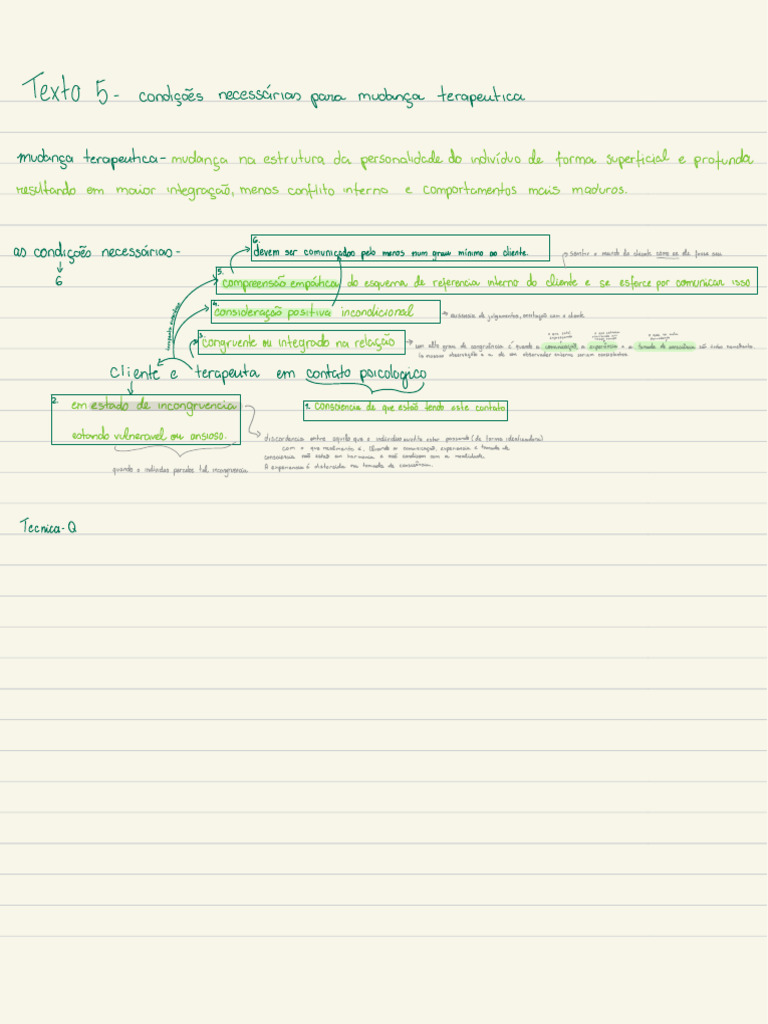 Texto 5 - condições necessárias para mudança terapeutica
mudança terapeutica - mudança na estrutura da personalidade do indivíduo de forma superficial e profunda
resultando em maior integração, menos conflito interno e comportamentos mais maduros.
as condições necessárias -
6
6.
devem ser comunicados pelo menos num grau mínimo ao cliente.
sentir o mundo do cliente como se ele fosse seu
5.
compreensão empática do esquema de referencia interno do cliente e se esforce por comunicar isso
4.
consideração positiva incondicional
ausencia de julgamentos, aceitação com o cliente
3.
congruente ou integrado na relação
um alto grau de congruência é quando a comunicação, a experiência e a tomada de consciência são
a nossa observação e a de um observador externo seriam consistentes.
cliente e terapeuta em contato psicologico
2.
em estado de incongruencia
estando vulneravel ou ansioso.
1. consciencia de que estão tendo este contato
discordancia entre aquilo que o individuo acredita estar pensando (de forma idealizadora)
com o que realmente é. Quando a comunicação, experiencia e tomada de
consciencia não estão em harmonia e não condizem com a realidade.
A experiencia é distorcida na tomada de consciência.
quando o individuo percebe tal incongruencia
Tecnica - Q